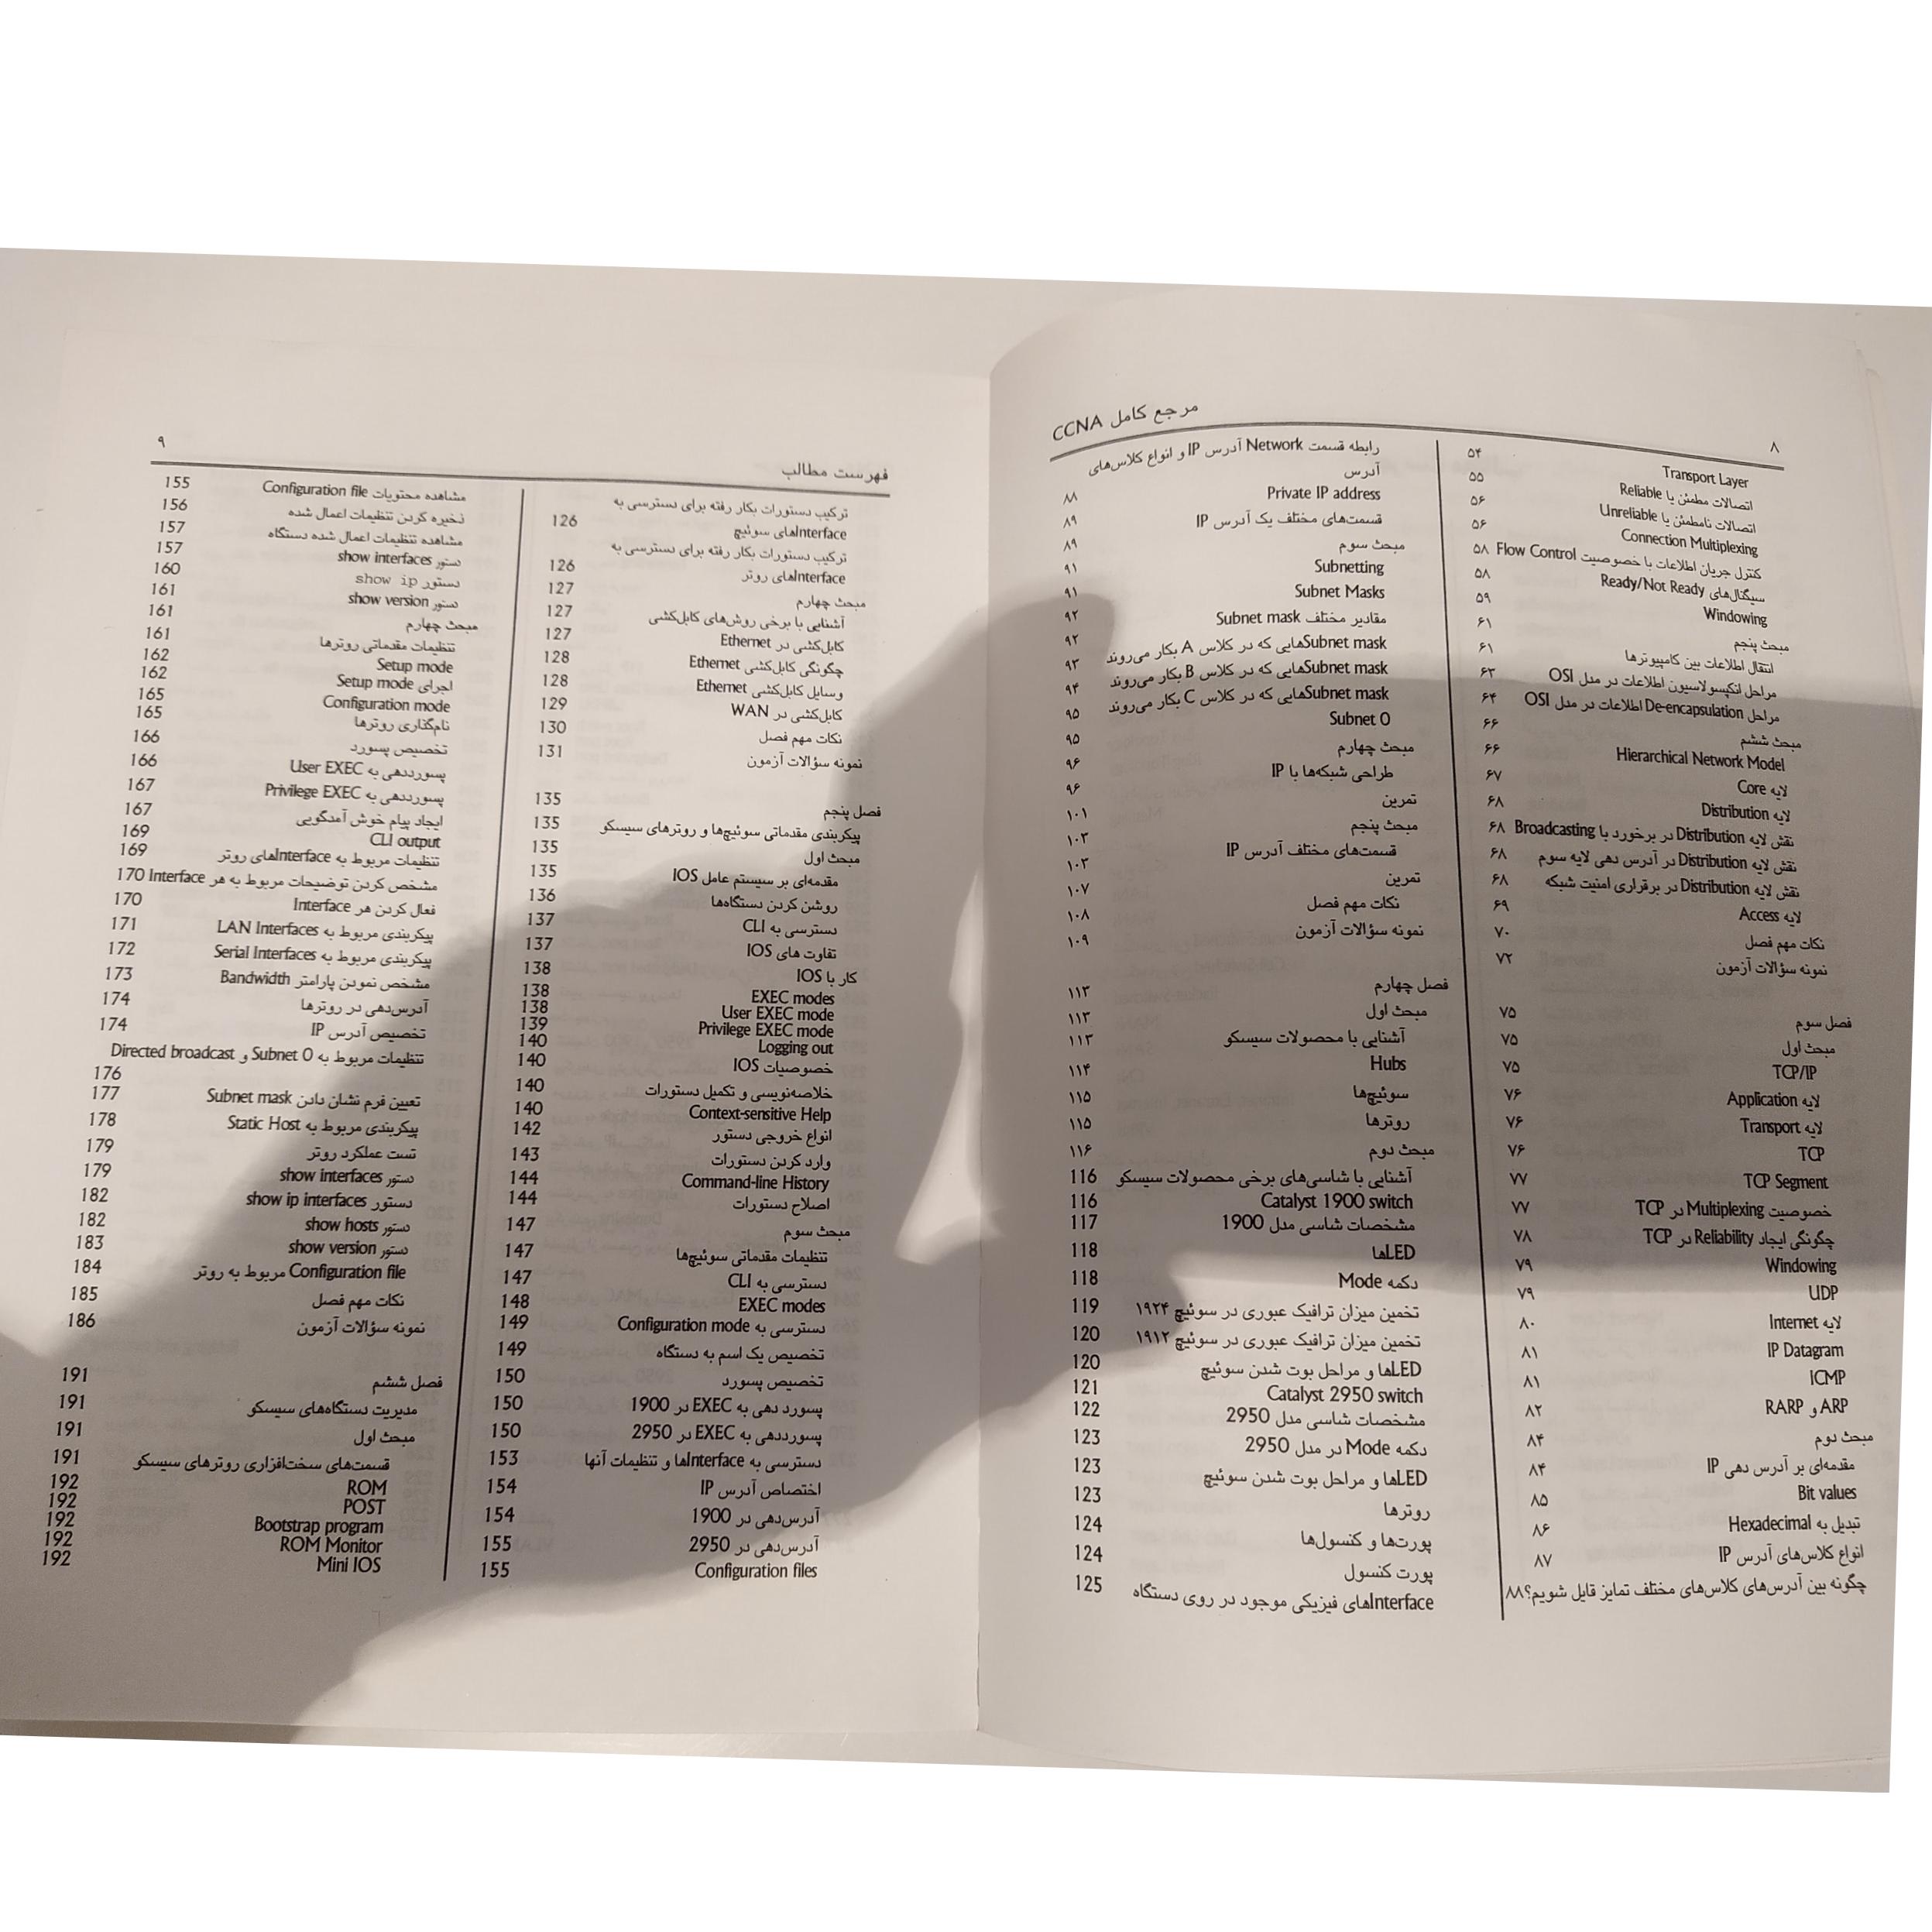 ۸
مرجع کامل CCNA
Transport Layer ۵۴
اتصالات مطمئن یا Reliable ۵۵
اتصالات نامطمئن یا Unreliable ۵۶
Connection Multiplexing ۵۶
کنترل جریان اطلاعات با خصوصیت Flow Control ۵۸
سیگنال‌های Ready/Not Ready ۵۸
Windowing ۵۹
مبحث پنجم ۶۱
انتقال اطلاعات بین کامپیوترها ۶۱
مراحل انکپسولاسیون اطلاعات در مدل OSI ۶۳
مراحل De-encapsulation اطلاعات در مدل OSI ۶۴
مبحث ششم ۶۶
Hierarchical Network Model ۶۶
لایه Core ۶۷
لایه Distribution ۶۸
نقش لایه Distribution در برخورد با Broadcasting ۶۸
نقش لایه Distribution در آدرس دهی لایه سوم ۶۸
نقش لایه Distribution در برقراری امنیت شبکه ۶۸
لایه Access ۶۹
نکات مهم فصل ۷۰
نمونه سؤالات آزمون ۷۲
فصل سوم ۷۵
مبحث اول ۷۵
TCP/IP ۷۵
لایه Application ۷۶
لایه Transport ۷۶
TCP ۷۶
TCP Segment ۷۷
خصوصیت Multiplexing در TCP ۷۷
چگونگی ایجاد Reliability در TCP ۷۸
Windowing ۷۹
UDP ۷۹
لایه Internet ۸۰
IP Datagram ۸۱
ICMP ۸۱
ARP و RARP ۸۲
مبحث دوم ۸۴
مقدمه‌ای بر آدرس دهی IP ۸۴
Bit values ۸۵
تبدیل به Hexadecimal ۸۶
انواع کلاس‌های آدرس IP ۸۷
چگونه بین آدرس‌های کلاس‌های مختلف تمایز قایل شویم؟ ۸۸
رابطه قسمت Network آدرس IP و انواع کلاس‌های
آدرس ۸۸
Private IP address ۸۹
قسمت‌های مختلف یک آدرس IP ۸۹
مبحث سوم ۹۱
Subnetting ۹۱
Subnet Masks ۹۲
مقادیر مختلف Subnet mask ۹۲
Subnet maskهایی که در کلاس A بکار می‌روند ۹۳
Subnet maskهایی که در کلاس B بکار می‌روند ۹۴
Subnet maskهایی که در کلاس C بکار می‌روند ۹۵
Subnet 0 ۹۵
مبحث چهارم ۹۶
طراحی شبکه‌ها با IP ۹۶
تمرین ۱۰۱
مبحث پنجم ۱۰۳
قسمت‌های مختلف آدرس IP ۱۰۳
تمرین ۱۰۷
نکات مهم فصل ۱۰۸
نمونه سؤالات آزمون ۱۰۹
فصل چهارم ۱۱۳
مبحث اول ۱۱۳
آشنایی با محصولات سیسکو ۱۱۳
Hubs ۱۱۴
سوئیچ‌ها ۱۱۵
روترها ۱۱۵
مبحث دوم ۱۱۶
آشنایی با شاسی‌های برخی محصولات سیسکو 116
Catalyst 1900 switch 116
مشخصات شاسی مدل 1900 117
LEDها 118
دکمه Mode 118
تخمین میزان ترافیک عبوری در سوئیچ ۱۹۲۴ 119
تخمین میزان ترافیک عبوری در سوئیچ ۱۹۱۲ 120
LEDها و مراحل بوت شدن سوئیچ 120
Catalyst 2950 switch 121
مشخصات شاسی مدل 2950 122
دکمه Mode در مدل 2950 123
LEDها و مراحل بوت شدن سوئیچ 123
روترها 123
پورت‌ها و کنسول‌ها 124
پورت کنسول 124
Interfaceهای فیزیکی موجود در روی دستگاه 125
فهرست مطالب
۹
ترکیب دستورات بکار رفته برای دسترسی به
Interfaceهای سوئیچ 126
ترکیب دستورات بکار رفته برای دسترسی به
Interfaceهای روتر 126
مبحث چهارم 127
آشنایی با برخی روش‌های کابل‌کشی 127
کابل‌کشی در Ethernet 127
چگونگی کابل‌کشی Ethernet 128
وسایل کابل‌کشی Ethernet 128
کابل‌کشی در WAN 129
نکات مهم فصل 130
نمونه سؤالات آزمون 131
فصل پنجم 135
پیکربندی مقدماتی سوئیچ‌ها و روترهای سیسکو 135
مبحث اول 135
مقدمه‌ای بر سیستم عامل IOS 135
روشن کردن دستگاه‌ها 136
دسترسی به CLI 137
تفاوت های IOS 137
کار با IOS 138
EXEC modes 138
User EXEC mode 138
Privilege EXEC mode 139
Logging out 140
خصوصیات IOS 140
خلاصه‌نویسی و تکمیل دستورات 140
Context-sensitive Help 140
انواع خروجی دستور 142
وارد کردن دستورات 143
Command-line History 144
اصلاح دستورات 144
مبحث سوم 147
تنظیمات مقدماتی سوئیچ‌ها 147
دسترسی به CLI 147
EXEC modes 148
دسترسی به Configuration mode 149
تخصیص یک اسم به دستگاه 149
تخصیص پسورد 150
پسورد دهی به EXEC در 1900 150
پسورددهی به EXEC در 2950 150
دسترسی به Interfaceها و تنظیمات آنها 153
اختصاص آدرس IP 154
آدرس‌دهی در 1900 154
آدرس‌دهی در 2950 155
Configuration files 155
مشاهده محتویات Configuration file 155
ذخیره کردن تنظیمات اعمال شده 156
مشاهده تنظیمات اعمال شده دستگاه 157
دستور show interfaces 157
دستور show ip 160
دستور show version 161
مبحث چهارم 161
تنظیمات مقدماتی روترها 161
Setup mode 162
اجرای Setup mode 162
Configuration mode 165
نام‌گذاری روترها 165
تخصیص پسورد 166
پسورددهی به User EXEC 166
پسورددهی به Privilege EXEC 167
ایجاد پیام خوش آمدگویی 167
CLI output 169
تنظیمات مربوط به Interfaceهای روتر 169
مشخص کردن توضیحات مربوط به هر Interface 170
فعال کردن هر Interface 170
پیکربندی مربوط به LAN Interfaces 171
پیکربندی مربوط به Serial Interfaces 172
مشخص نمودن پارامتر Bandwidth 173
آدرس‌دهی در روترها 174
تخصیص آدرس IP 174
تنظیمات مربوط به Subnet 0 و Directed broadcast
176
تعیین فرم نشان دادن Subnet mask 177
پیکربندی مربوط به Static Host 178
تست عملکرد روتر 179
دستور show interfaces 179
دستور show ip interfaces 182
دستور show hosts 182
دستور show version 183
Configuration file مربوط به روتر 184
نکات مهم فصل 185
نمونه سؤالات آزمون 186
فصل ششم 191
مدیریت دستگاه‌های سیسکو 191
مبحث اول 191
قسمت‌های سخت‌افزاری روترهای سیسکو 191
ROM 192
POST 192
Bootstrap program 192
ROM Monitor 192
Mini IOS 192